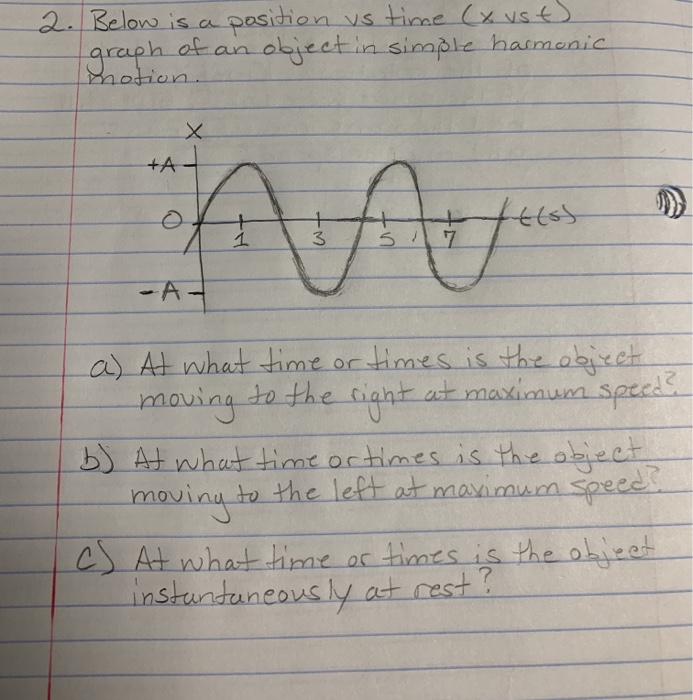 2. Below is a position vs time (x vs t)
graph of an object in simple harmonic
motion.
X
+A
O
1
3
5
7
t(s)
-A
a) At what time or times is the object
moving to the right at maximum speed?
b) At what time or times is the object
moving to the left at maximum speed?
c) At what time or times is the object
instantaneously at rest?